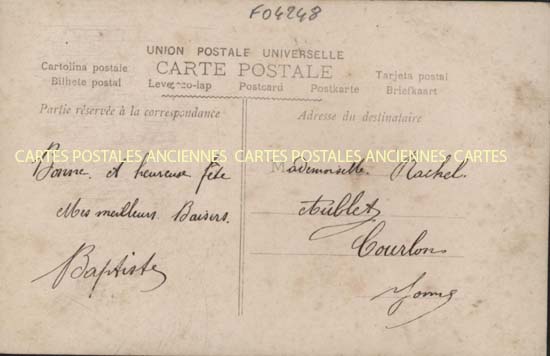 F04248
UNION POSTALE UNIVERSELLE
Cartolina postale CARTE POSTALE Tarjeta postal
Bilhete postal Levelező-lap Postcard Postkarte Briefkaart
Partie réservée à la correspondance Adresse du destinataire
CARTES POSTALES ANCIENNES CARTES POSTALES ANCIENNES CARTES
Bonne et heureuse fête
Mes meilleurs Baisers.
Baptiste
Mademoiselle Rachel.
Aublet
Courlon
Yonne